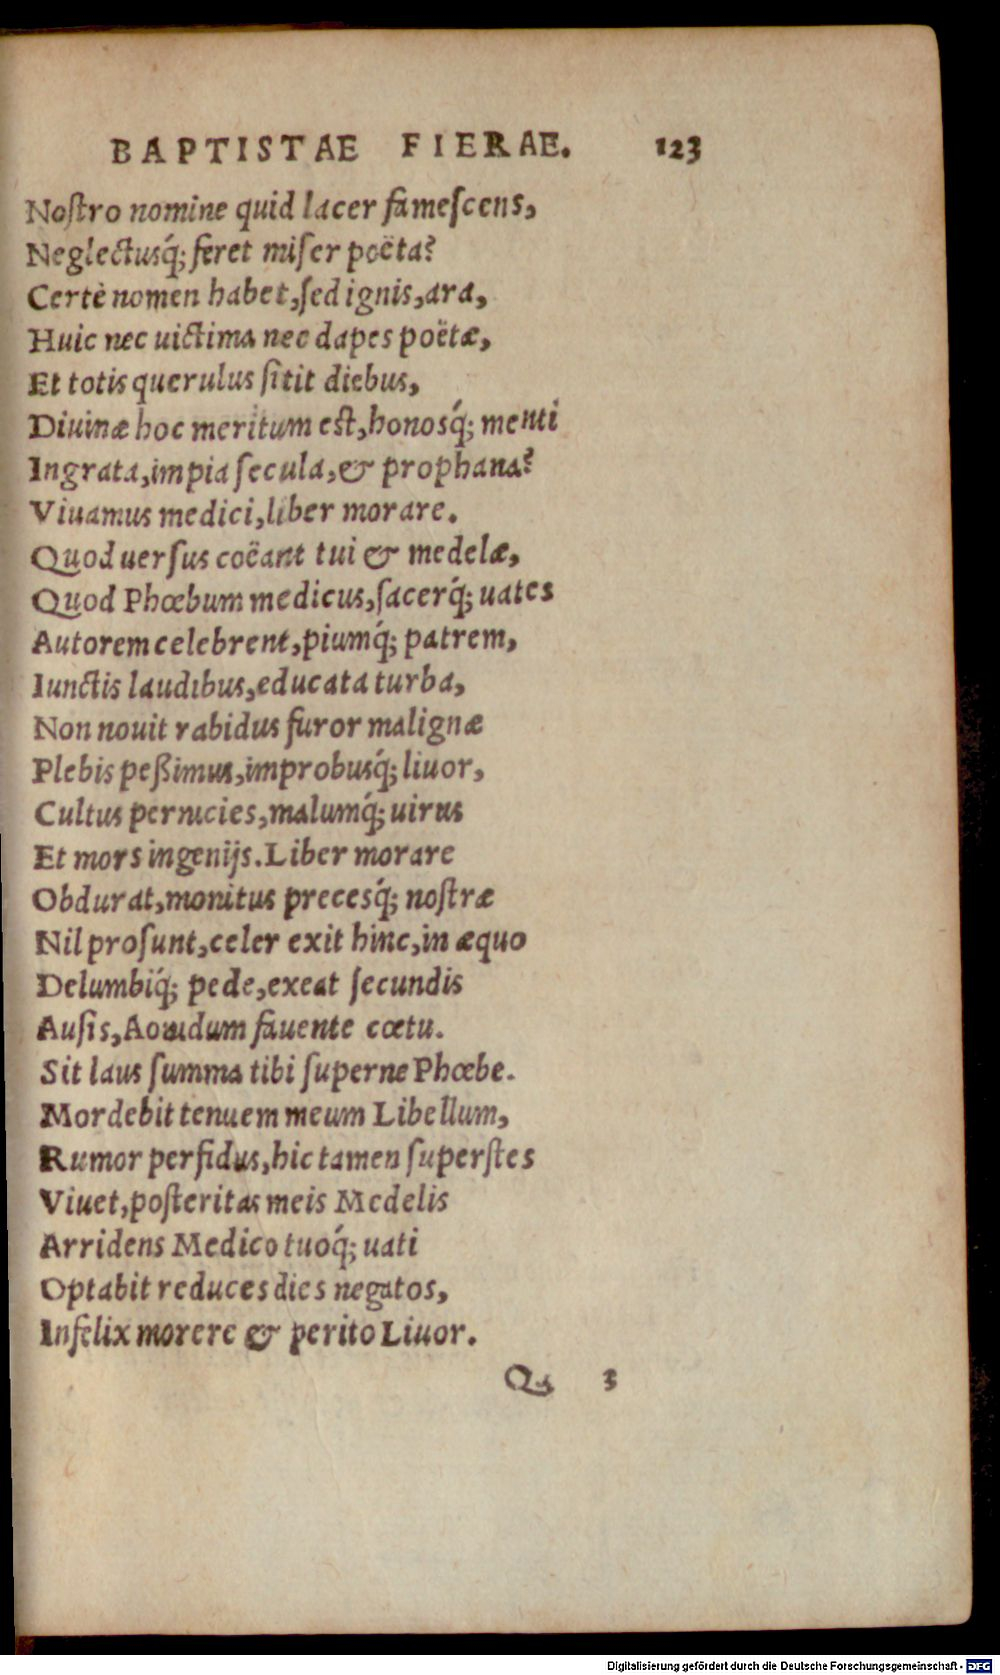 BAPTISTAE FIERAE. 123
Noſtro nomine quid lacer fameſcens,
Neglectusq́; feret miſer poëta?
Certè nomen habet, ſed ignis, ara,
Huic nec uictima nec dapes poëtæ,
Et totis querulus ſitit diebus,
Diuinæ hoc meritum eſt, honosq́; menti
Ingrata, impia ſecula, & prophana?
Viuamus medici, liber morare.
Quod uerſus coëant tui & medelæ,
Quod Phœbum medicus, ſacerq́; uates
Autorem celebrent, piumq́; patrem,
Iunctis laudibus, educata turba,
Non nouit rabidus furor malignæ
Plebis peßimus, improbusq́; liuor,
Cultus pernicies, malumq́; uirus
Et mors ingenijs. Liber morare
Obdurat, monitus precesq́; noſtræ
Nil proſunt, celer exit hinc, in æquo
Delumbiq́; pede, exeat ſecundis
Auſis, Aonidum fauente cœtu.
Sit laus ſumma tibi ſuperne Phœbe.
Mordebit tenuem meum Libellum,
Rumor perfidus, hic tamen ſuperſtes
Viuet, poſteritas meis Medelis
Arridens Medico tuoq́; uati
Optabit reduces dies negatos,
Infelix morere & perito Liuor.
Q 3
Digitalisierung gefördert durch die Deutsche Forschungsgemeinschaft - DFG